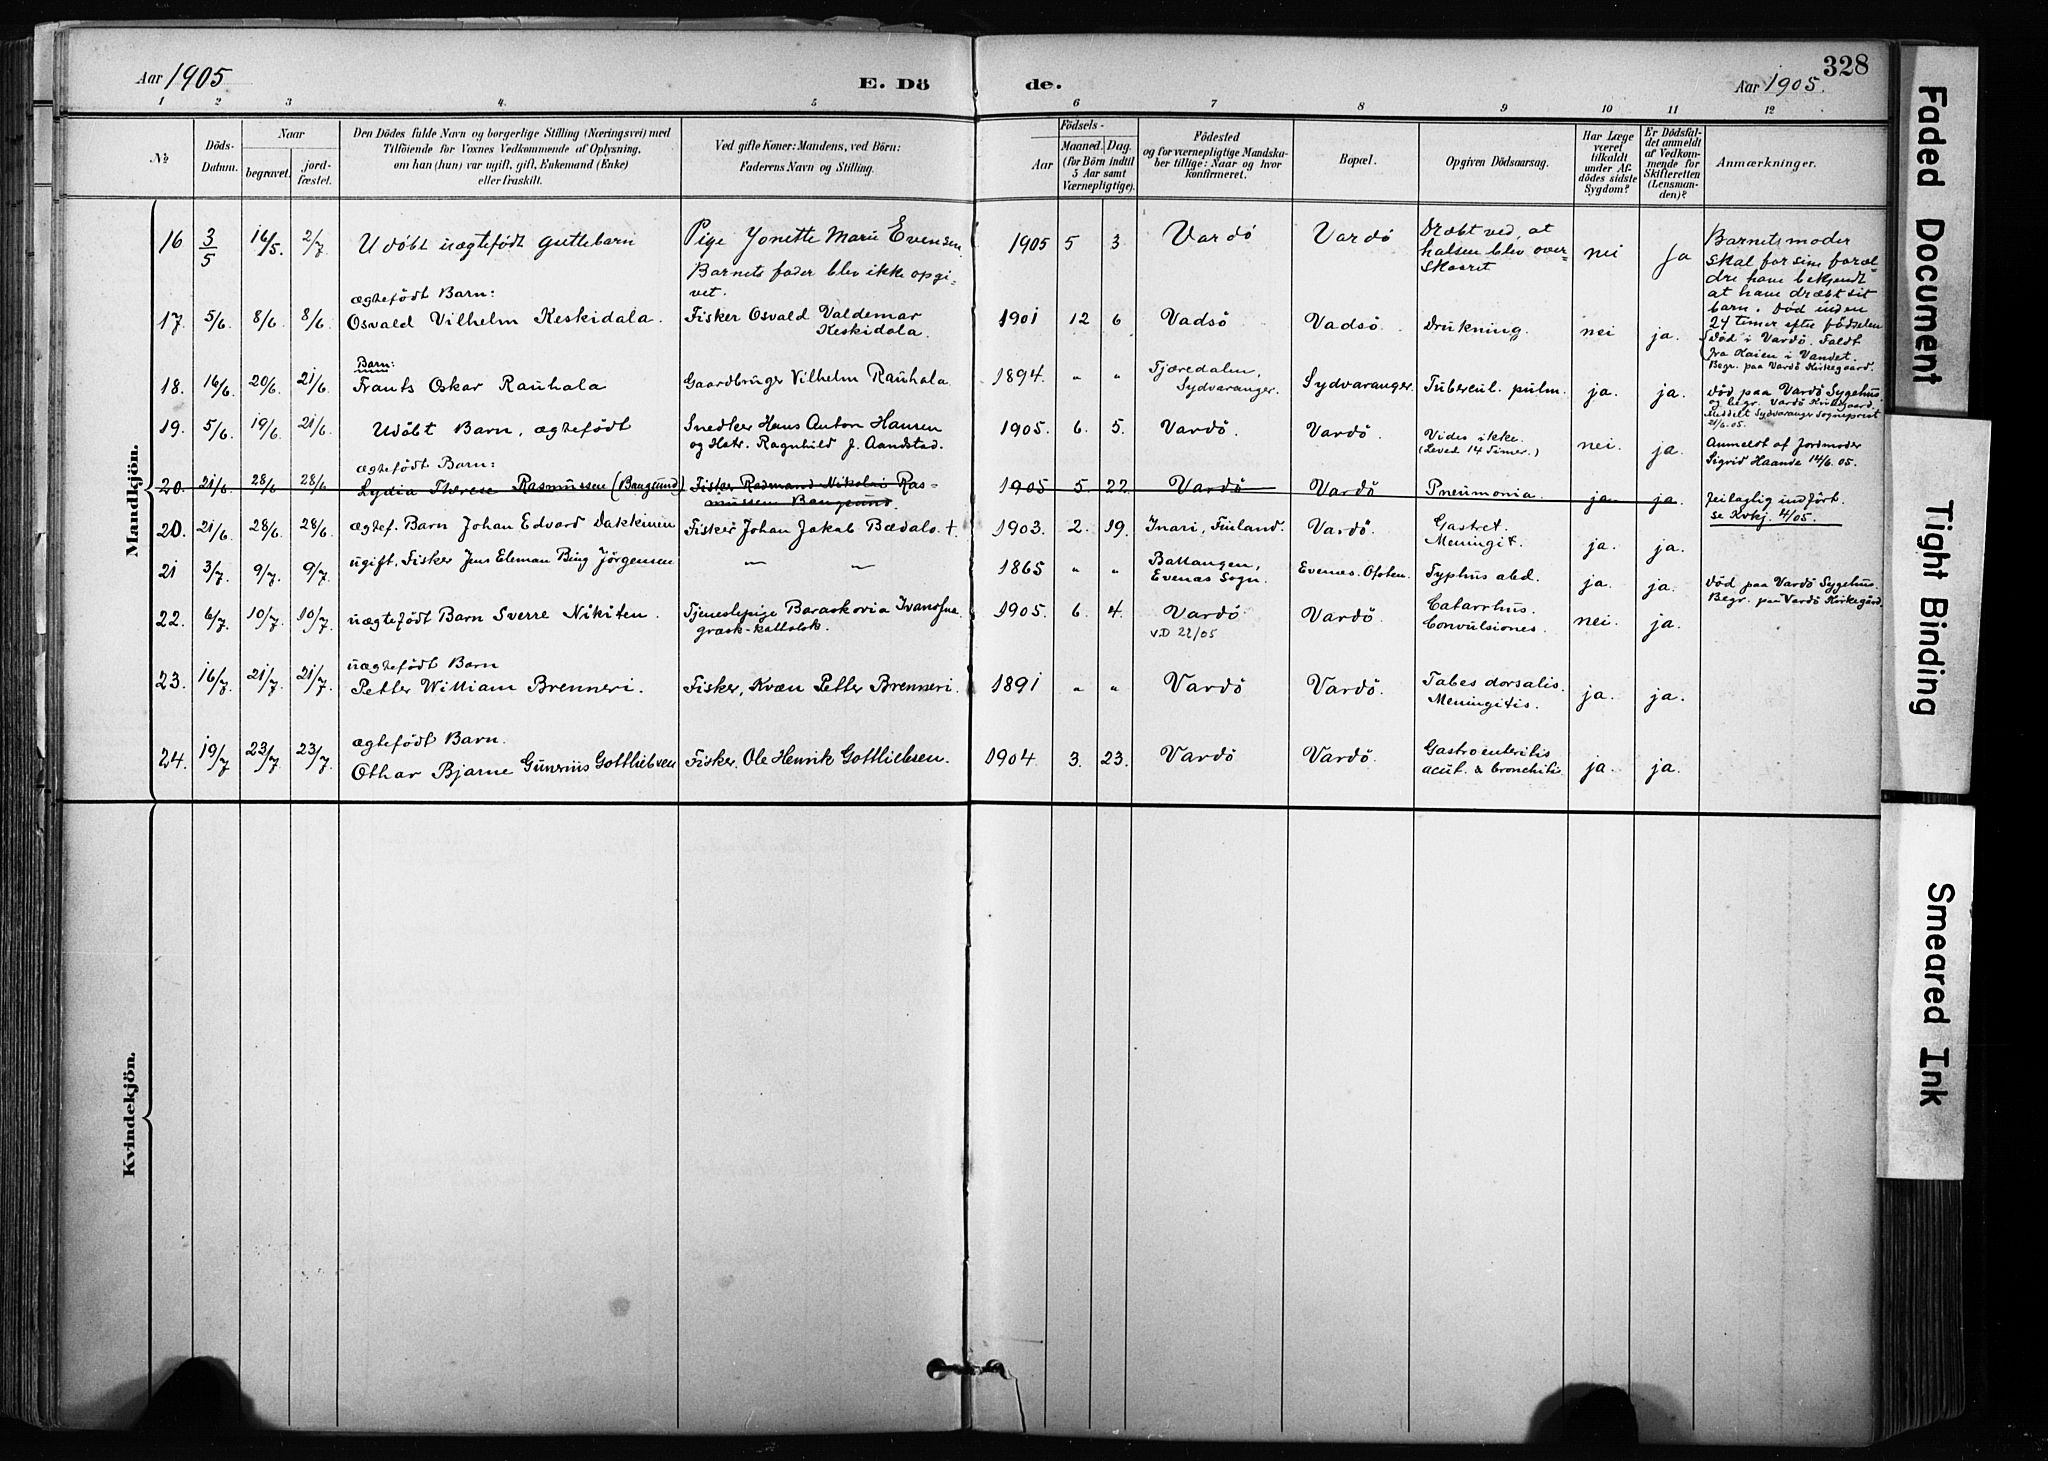 Aar 1905
E. Döde.
Aar 1905.
328
1 2 3 4. 5 6 7 8 9 10 11 12
№
Döds-
Datum.
Naar
begravet.
jord-
fæstet.
Den Dödes fulde Navn og borgerlige Stilling (Næringsvei) med
Tilföiende for Voxnes Vedkommende af Oplysning,
om han (hun) var ugift, gift, Enkemand (Enke)
eller fraskilt.
Ved gifte Koner: Mandens, ved Börn:
Faderens Navn og Stilling.
Födsels-
Aar
Maaned.
Dag.
(for Börn indtil
5 Aar samt
Værnepligtige).
Födested
og for værnepligtige Mandska-
ber tillige: Naar og hvor
konfirmeret.
Bopæl.
Opgiven Dödsaarsag.
Har Læge
været
tilkaldt
under Af-
dödes sidste
Sygdom?
Er Dödsfal-
det anmeldt
af Vedkom-
mende for
Skifteretten
(Lensman-
den)?
Anmærkninger.
Mandkjön.
16 3/5 16/5. 2/7 Udöbt uægtefödt guttebarn
Pige Jonette Marie Evensen.
Barnets fader blev ikke opgi-
vet.
1905 5 3 Vardö Vardö
Dræbt ved, at
halsen blev over-
skaaret
nei Ja
Barnets moder
skal for sine foræl-
dre have bekjendt
at have dræbt sit
barn. Död inden
24 timer efter födselen
17. 5/6. 8/6 8/6
ægtefödt Barn:
Osvald Vilhelm Keskidala.
Fisker Osvald Valdemar
Keskidala.
1901 12 6 Vadsö Vadsö. Drukning. nei ja.
Död i Vardö. Faldt
fra Kaien i Vandet.
Begr. paa Vardö Kirkegaard.
18. 16/6. 20/6. 21/6
Barn:
Frants Oskar Rauhala
Gaardbruger Vilhelm Rauhala.
1894. " "
Fjæredalen,
Sydvaranger.
Sydvaranger. Tubercul. pulm. ja. ja.
död paa Vardö Sygehus.
og begr. Vardö Kirkegaard.
Meddelt Sydvaranger Sogneprest
21/6.05.
19. 5/6. 19/6 21/6 Udöbt Barn, ægtefödt
Snedker Hans Anton Hansen
og Hstr. Ragnhild J. Aandstad.
1905. 6. 5. Vardö. Vardö.
Vides ikke.
(Leved 14 Timer.)
nei. ja.
Anmeldt af Jordmoder
Sigrid Haande 14/6.05.
20. 21/6 28/6 28/6
ægtefödt Barn:
Lydia Therese Rasmussen (Baugsund)
Fisker Redmand Nikolai Ras-
mussen Baugsund.
1905 5. 22. Vardö Vardö Pneumonia. ja ja.
feilagtig indfört.
se Kvkj. 4/05.
20. 21/6 28/6 28/6 ægtef. Barn Johan Edvard Dakkinen
Fisker Johan Jakob Bædalo. +.
1903. 2. 19. Inari, Finland. Vardö.
Gastret.
Meningit.
ja. ja.
21 3/7. 9/7 9/7 ugift. Fisker Jens Eleman Bing Jörgensen
" "
1865 " "
Ballangen,
Evenæs Sogn.
Evenæs. Ofoten. Typhus abd. ja. ja.
död paa Vardö Sygehus.
Begr. paa Vardö Kirkegård.
22. 6/7 10/7 10/7 uægtefödt Barn Sverre Nikiten.
Tjenestepige Baraskovia
græsk-kattolsk.
1905. 6. 4. Vardö
V.D 22/05
Vardö.
Catarrhus.
Convulsiones.
nei. ja.
23. 16/7 21/7 21/7
uægtefödt Barn
Petter William Brenneri.
Fisker, Kvæn Petter Brenneri.
1891 " " Vardö Vardö.
Tabes dorsalis.
Meningitis.
ja. ja.
24. 19/7 23/7 23/7
ægtefödt Barn.
Othar Bjarne Gunerius Gottliebsen
Fisker. Ole Henrik Gottliebsen.
1904 3. 23. Vardö Vardö.
Gastroenteritis
acut. & bronchitis
ja. ja.
Kvindekjön.
Faded Document
Tight Binding
Smeared Ink